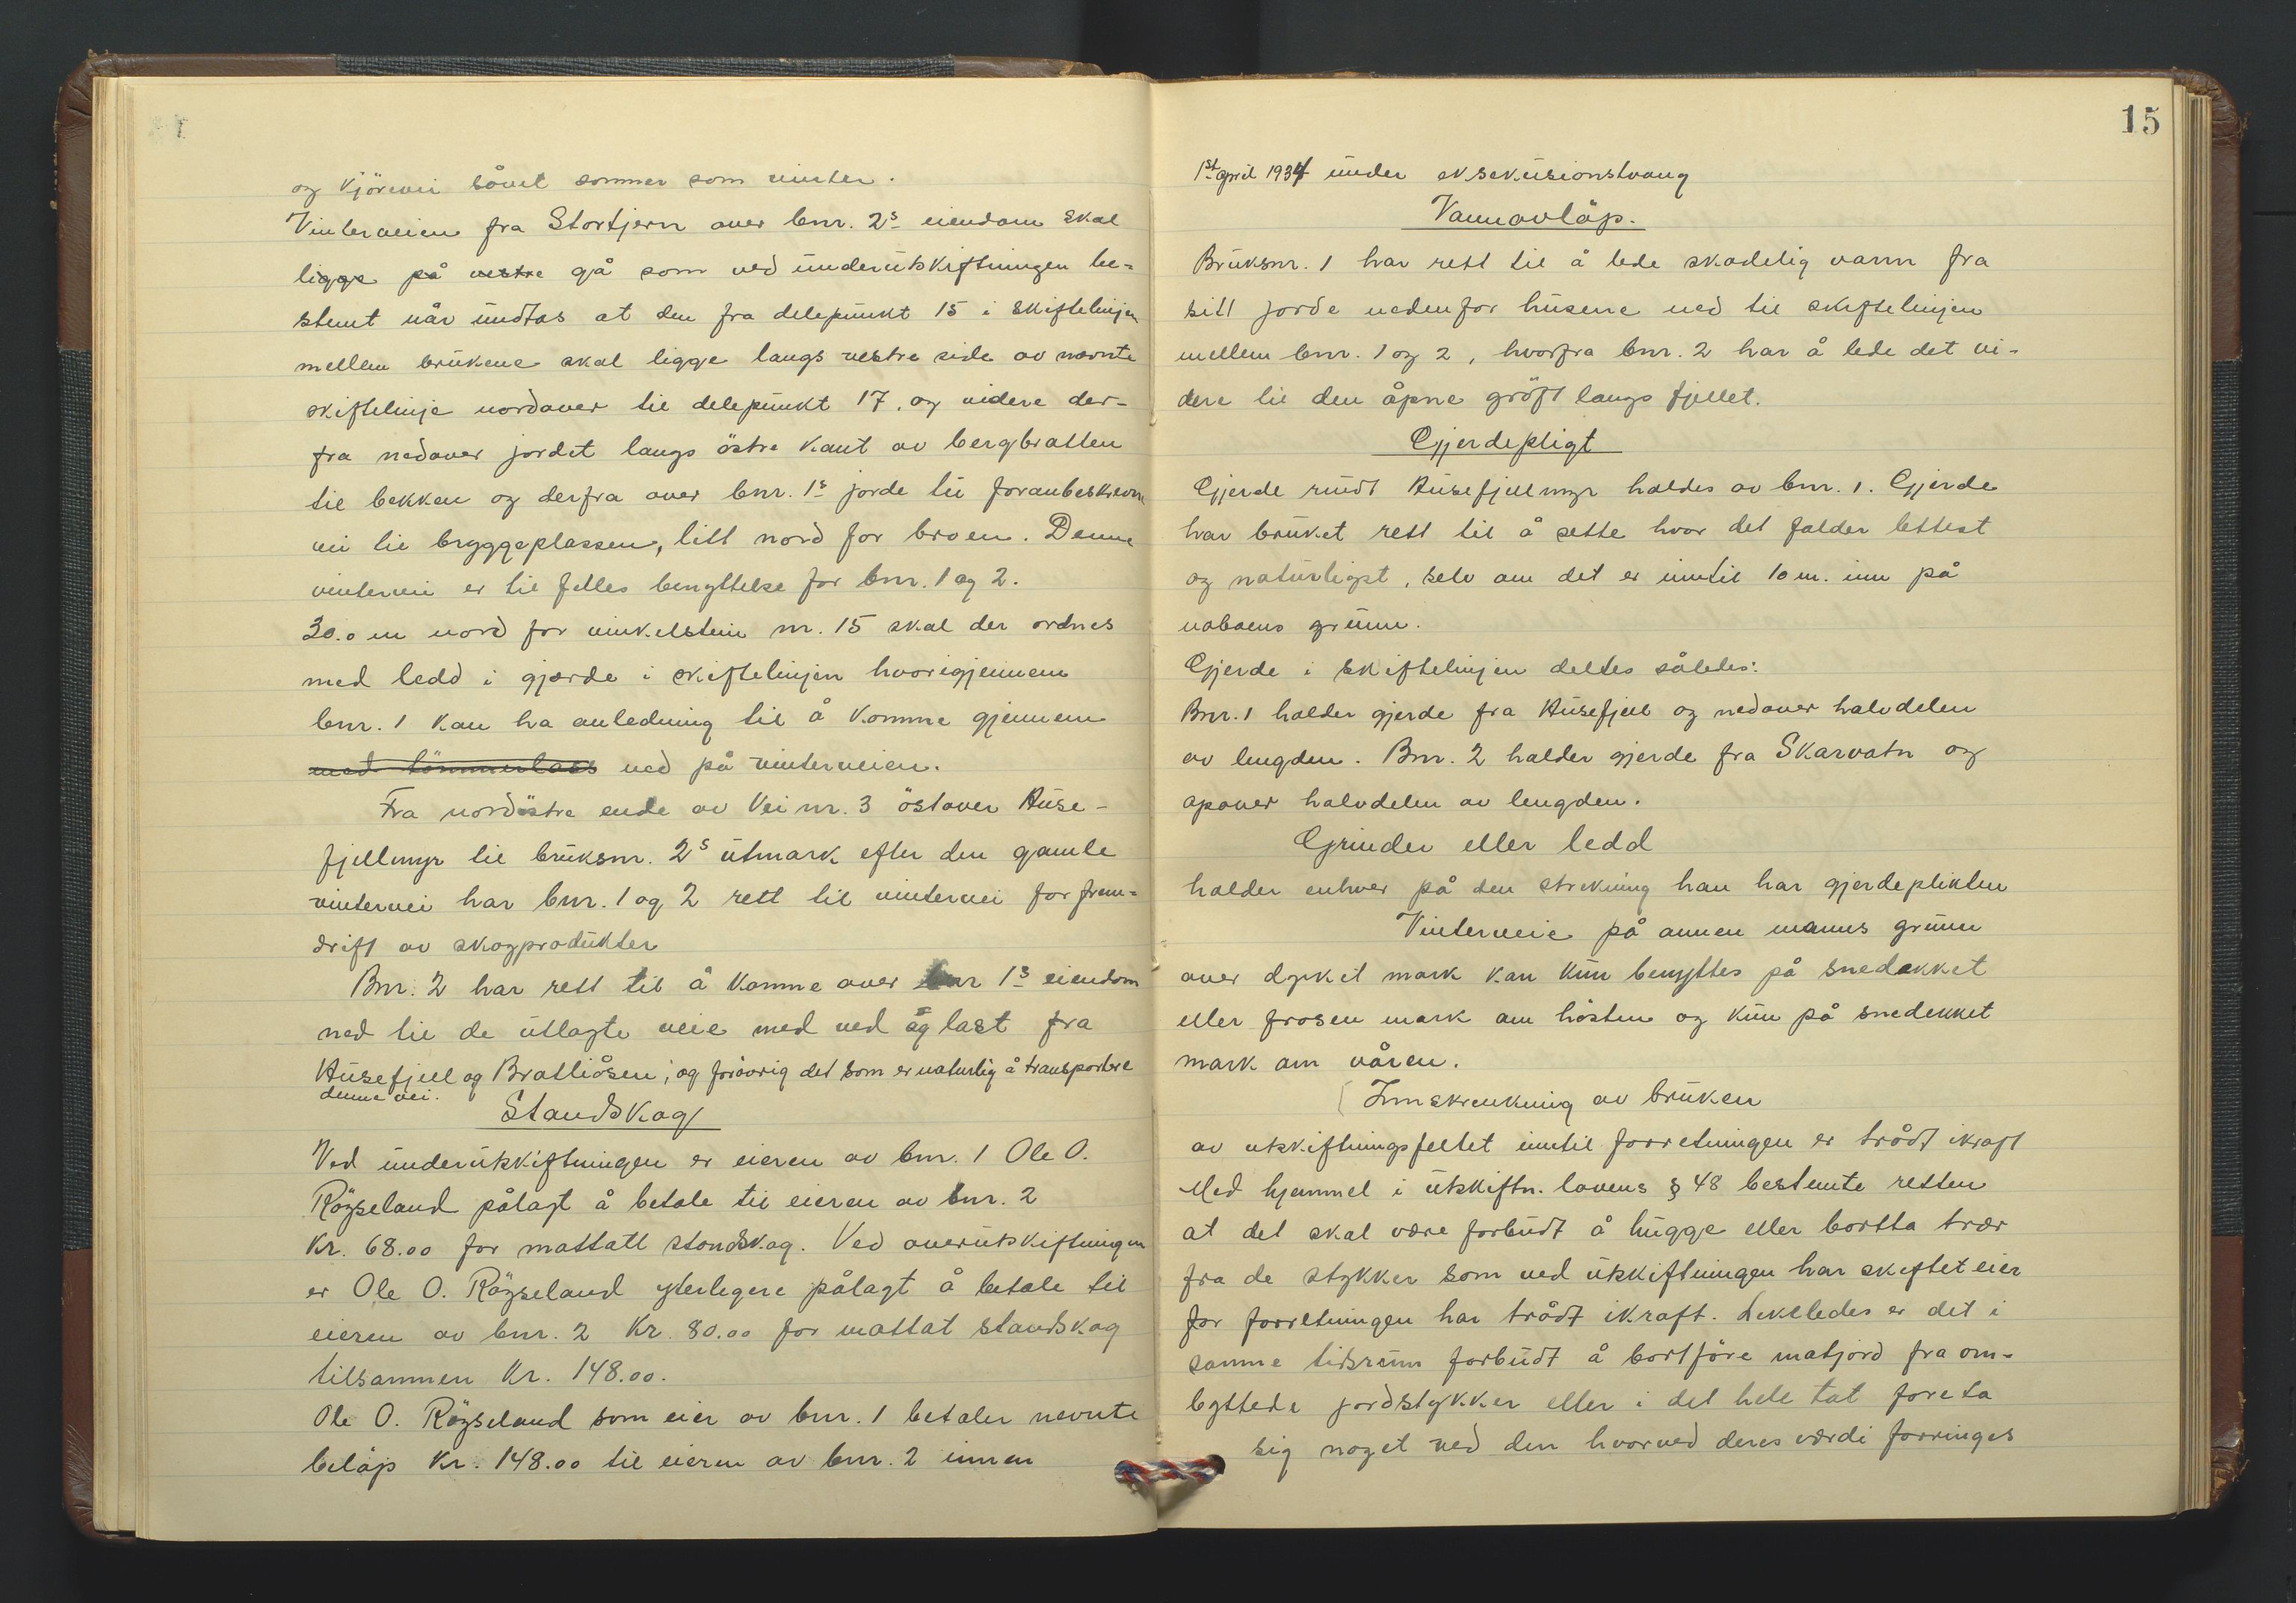 og kjörevei såvel sommer som vinter.
Vinterveien fra Stortjern over bnr. 2s eiendom skal
ligge på vestre gå som ved underutskiftningen be-
stemt når undtas at den fra delepunkt 15 i skiftelinjen
mellem brukene skal ligge langs vestre side av nevnte
skiftelinje nordover til delepunkt 17, og videre der-
fra nedover jordet langs östre kant av bergbratten
til bekken og derfra over bnr. 1s jorde til foranbeskrevne
vei til bryggeplassen, litt nord for broen. Denne
vintervei er til felles benyttelse for bnr. 1 og 2.
30.0 m nord for vinkelstein nr. 15 skal der ordnes
med ledd i gjærde i skiftelinjen hvorigjennem
bnr. 1 kan ha anledning til å komme gjennem
med tömmerlass ned på vinterveien.
Fra nordöstre ende av Vei nr. 3 östover Huse-
fjellmyr til bruksnr. 2s utmark efter den gamle
vintervei har bnr. 1 og 2 rett til vintervei for frem-
drift av skogprodukter
Bnr. 2 har rett til å komme over bnr 1s eiendom
ned til de utlagte veie med ved og last fra
Husefjell og Bratliåsen, og foröorig det som er naturlig å transportere
denne vei.
Standskog
Ved underutskiftningen er eieren av bnr. 1 Ole O.
Röyseland pålagt å betale til eieren av bnr. 2
Kr. 68.00 for mottatt standskog. Ved overutskiftningen
er Ole O. Röyseland yterligere pålagt å betale til
eieren av bnr. 2 Kr. 80.00 for mottat standskog
tilsammen Kr. 148.00.
Ole O. Röyseland som eier av bnr. 1 betaler nevnte
belöp Kr. 148.00 til eieren av bnr. 2 innen
15
1st april 1934 under eksekusionstvang
Vannavlöp.
Bruksnr. 1 har rett til å lede skadelig vann fra
sitt jorde nedenfor husene ned til skiftelinjen
mellem bnr. 1 og 2, hvorfra bnr. 2 har å lede det vi-
dere til den åpne gröft langs fjellet.
Gjerdepligt
Gjerde rundt Husefjellmyr holdes av bnr. 1. Gjerde
har bruket rett til å sette hvor det falder lettest
og naturligst, selv om det er inntil 10 m. inn på
naboens grunn.
Gjerde i skiftelinjen deltes således:
Bnr. 1 holder gjerde fra Husefjell og nedover halvdelen
av lengden. Bnr. 2 holder gjerde fra Skarvatn og
opover halvdelen av lengden.
Grinder eller ledd
holder enhver på den strekning han har gjerdeplikten
Vinterveie på annen manns grunn
over dyrket mark kan kun benyttes på snedekket
eller frosen mark om hösten og kun på snedekket
mark om våren.
Innskrenkning av bruken
av utskiftningsfeltet inntil forretningen er trådt ikraft
Med hjemmel i utskiftn. lovens § 48 bestemte retten
at det skal være forbudt å hugge eller bortta trær
fra de stykker som ved utskiftningen har skiftet eier
för forretningen har trådt ikraft. Likeledes er det i
samme tidsrum forbudt å bortföre matjord fra om-
byttede jordstykker eller i det hele tat foreta
sig noget ved den hvorved deres værdi forringes